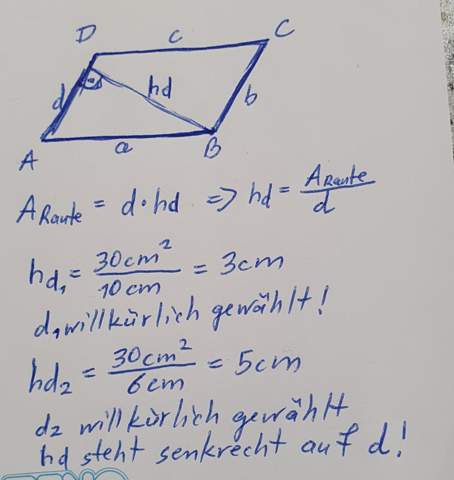 D c C
d hd b
A a B
A Raute = d · hd => hd = A Raute / d
hd₁ = 30cm² / 10cm = 3cm
d₁ willkürlich gewählt!
hd₂ = 30cm² / 6cm = 5cm
d₂ willkürlich gewählt
hd steht senkrecht auf d!